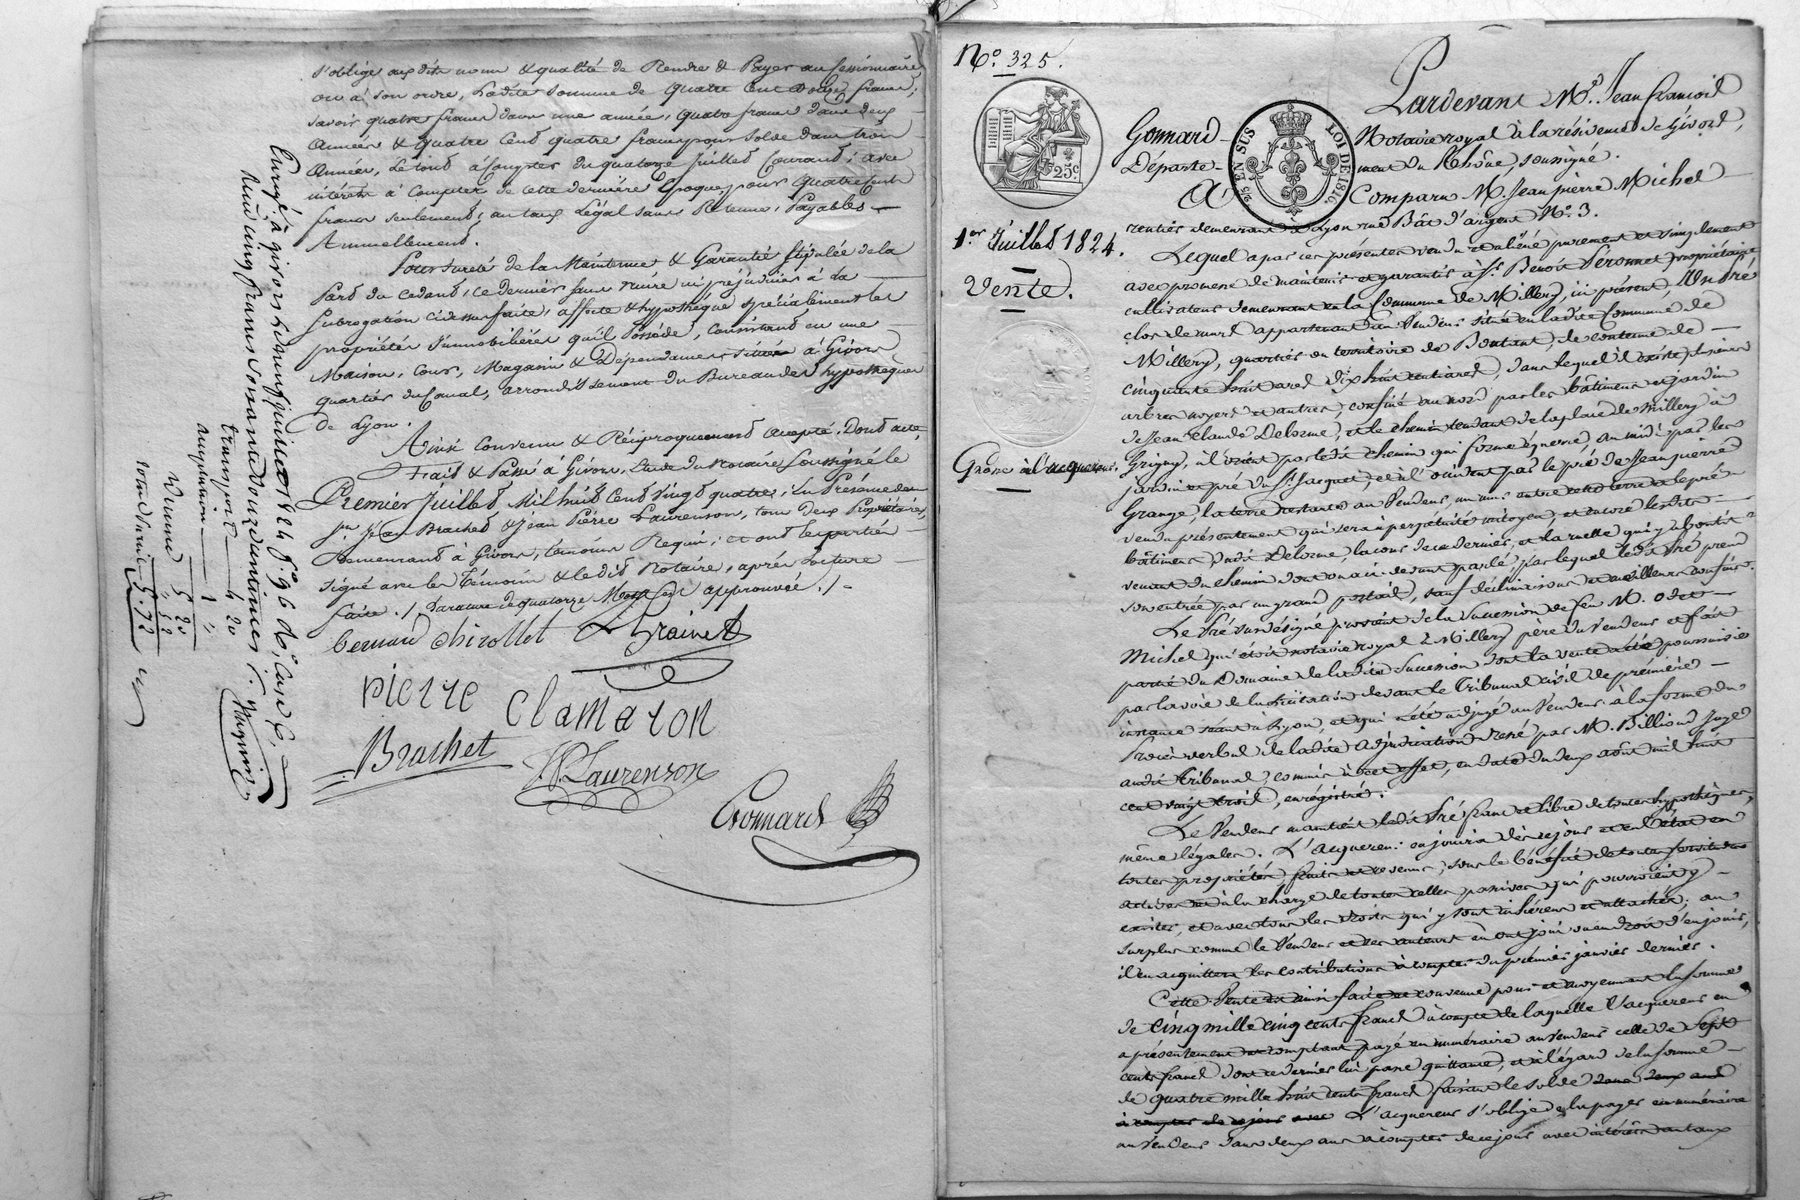 s'oblige aux dits noms & qualité de Rendre & Payer au Cessionnaire
ou à son ordre, Ladite Somme de quatre Cent douze francs,
savoir quatre francs dans une année, quatre francs dans deux
Années & quatre Cent quatre francs pour Solde dans trois
Années, Le tout à Compter du quatorze Juillet Courant; avec
intérêts à Compter de cette dernière Epoque, pour quatre Cents
francs seulement, au taux Légal sans Retenue, Payables
Annuellement.
Pour sureté de la Maintenue & Garantie Stipulée de la
Part du cédant, ce dernier sans nuire ni préjudicier à la
Subrogation ci dessus faite, affecte & hypothèque spécialement les
propriétés Immobilières qu'il Possède, Consistant en une
Maison, Cour, Magasin & Dépendances situés à Givors
quartier du Canal, arrondissement du Bureau des hypothèques
de Lyon.
Ainsi Convenu & Réciproquement accepté, Dont acte,
Fait & Passé à Givors, Etude du Notaire Soussigné le
Premier Juillet, Mil huit Cent Vingt quatre; En Présence de
Jean Brachet & Jean Pierre Laurenson, tous deux Propriétaires,
Demeurant à Givors, témoins Requis; et ont les parties
signé avec les Témoins & ledit Notaire, après Lecture
faite. / La rature de quatorze Mots est approuvée. /
bernard chirollet
pierre Clamaron
Brachet
JP Laurenson
Gonnard
Enregé à givors le deux juillet 1824 f° 96
Reçu cinq francs soixante douze centimes
transport 4 20
ampliation 1 "
5 20
Dixme " 52
total 5.72
N° 325.
25c
25 EN SUS
LOI DE 1816.
1er Juillet 1824.
Vente.
Grosse à l'acquereur.
Pardevant Me Jean François
Gonnard Notaire royal à la résidence de Givors,
Département du Rhône, soussigné.
A Comparu M. Jean pierre Michel
rentier demeurant à Lyon rue Bât d'argent N° 3.
Lequel a par ces présentes vendu et aliéné purement et simplement
avec promesse de maintenir et garantir à Sr Benoit Peronnet propriétaire
cultivateur demeurant en la Commune de Millery, ici présent, Un Pré
clos de murs appartenant au Vendeur situé en la dite Commune de
Millery, quartier ou territoire de Boutant, de contenue de
cinquante huit ares dix huit centiares, dans lequel il existe plusieurs
arbres noyers et autres, confiné au nord par les bâtimens et jardin
de Jean Claude Delorme, et le chemin tendant de la place de Millery à
Grigny, à l'orient par ledit chemin qui forme équerre, au midi par les
jardin et pré du Sr Jacquet, et à l'occident par le pré de Jean pierre
Grange, la terre restante au Vendeur, un mur entre cette terre et le pré
vendu présentement qui sera à perpétuité mitoyen, et encore les dits
bâtimens dudit Delorme, la cour de ce dernier, et la ruelle qui y aboutit
venant du chemin dont on a ci devant parlé, par lequel ledit Pré prend
son entrée par un grand portail, sauf déclinaisons et meilleurs confins.
Le Pré sus désigné provient de la Succession de feu M. Odet
Michel qui étoit notaire royal à Millery père du Vendeur et fait
partie du Domaine de ladite Succession dont la vente a été poursuivie
par la voie de la licitation devant le Tribunal civil de première
instance séant à Lyon, et qui a été adjugé au Vendeur à la forme du
Procès verbal de ladite adjudication dressé par M. Billioud Juge
audit Tribunal, commis à cet effet, en date du deux août mil huit
cent vingt trois, enrégistré.
Le Vendeur maintient ledit Pré franc et libre de toutes hypothèques,
même légales. L'acquereur en jouira dès ce jour et en l'état en
toutes propriétés, fruits et revenus, sous le bénéfice de toutes servitudes
actives et à la charge de toutes celles passives qui pourroient y
exister, et avec tous les droits qui y sont inhérens et attachés; au
surplus comme le Vendeur et ses auteurs en ont joui ou eu droit d'en jouir,
il en acquittera les contributions à compter du premier janvier dernier.
Cette Vente est ainsi faite et convenue pour et moyennant la somme
de cinq mille cinq cents francs à compte de laquelle l'acquereur en
a présentement et comptant payé en numéraire au Vendeur celle de Sept
cents francs dont ce dernier lui passe quittance, et à l'égard de la somme
de quatre mille huit cents francs faisant le solde dans deux ans
à compter de ce jour avec L'acquereur s'oblige de la payer en numéraire
au Vendeur dans deux ans à compter de ce jour avec intérêts au taux